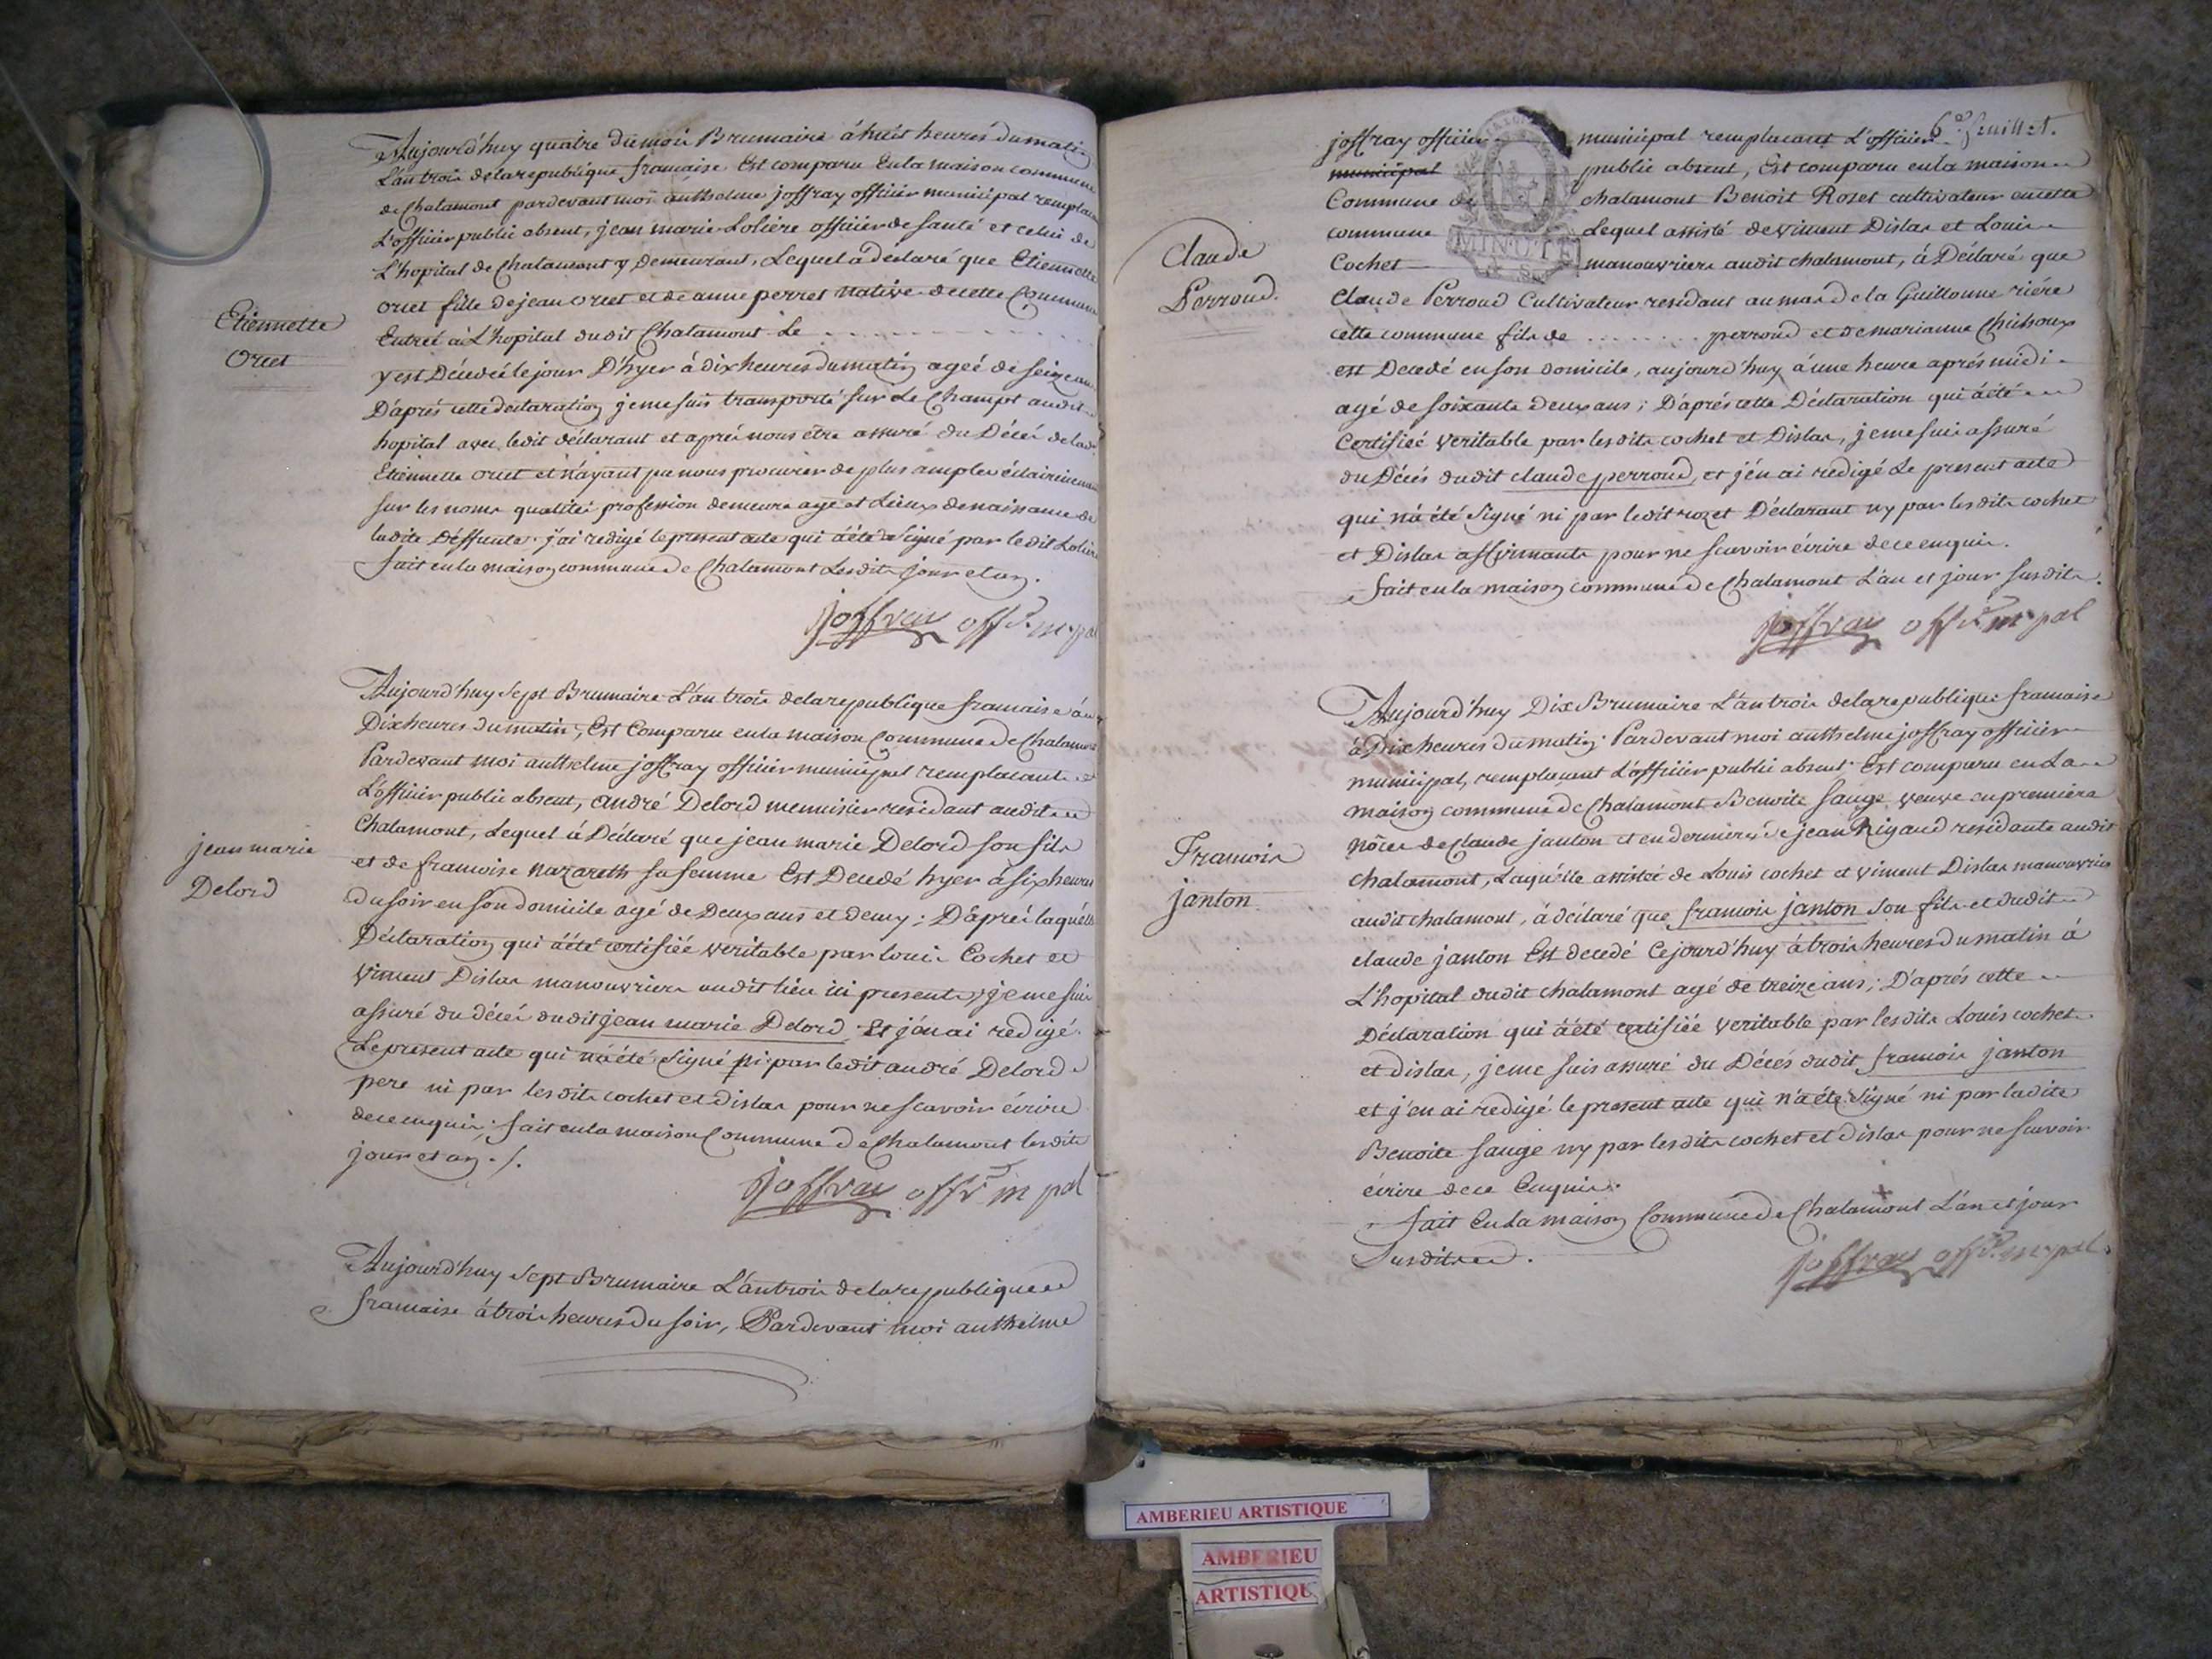 Aujourd'huy quatre du mois Brumaire à huit heures du matin
L'an trois de la republique francaise Est comparu En la maison commune
de Chalamont pardevant moi anthelme joffray officier municipal remplacant
L'officier public absent, jean marie Loliere officier de santé et celui de
L'hopital de Chalamont y demeurant, Lequel a déclaré que Etiennette
Orcet fille de jean orcet et de anne perret native de cette Commune
Entreé à L'hopital dudit Chalamont Le . . . . . . . . . .
y est Décedeé le jour D'hyer à dix heures du matin ageé de seize ans
D'aprés cette declaration je me suis transporté sur Le Champt audit
hopital avec ledit déclarant et aprés nous être assuré du Décés de lad.
Etiennette orcet et n'ayant pu nous procurer de plus amples éclaircicemens
sur les noms qualités profession demeure age et Lieux de naissance de
ladite Déffunte. j'ai redigé le present acte qui à été Signé par ledit Loliere
fait en la maison commune de Chalamont Lesdits jour et an.
joffray offr. m.pal
Etiennette
Orcet
Aujourd'huy Sept Brumaire L'an trois de la republique francaise à
Dix heures du matin, Est Comparu en la maison Commune de Chalamont
Pardevant moi anthelme joffray officier municipal remplacant
L'officier public absent, andré Delord menuisier residant audit
Chalamont, Lequel à Déclaré que jean marie Delord son fils
et de francoise nazareth sa femme Est Decedé hyer à six heures
du soir en son domicile agé de Deux ans et demy; D'aprés laquelle
Déclaration qui à été certifiée veritable par louis Cochet et
Vincent Dislas manouvriers audit lieu ici presents, je me suis
assuré du décés dudit jean marie Delord Et j'en ai redigé
Le present acte qui n'à été Signé ni par ledit andré Delord
pere ni par lesdits cochet et dislas pour ne scavoir écrire
de ce enquis; fait en la maison Commune de Chalamont lesdits
jour et an ./.
joffray offr m pal
jean marie
Delord
Aujourd'huy Sept Brumaire L'an trois de la republique
francaise à trois heures du soir, Pardevant moi anthelme
6e. feuillet.
joffray officier municipal remplacant L'officier
municipal public absent, Est comparu en la maison
Commune de chalamont Benoit Rozet cultivateur en cette
commune Lequel assisté de vincent Dislas et Louis
Cochet manouvriers audit chalamont, à Déclaré que
Claude Perroud Cultivateur residant au mas de la Guillonne riére
cette commune fils de . . . . . . . . perroud et de marianne
est Decedé en son domicile, aujourd'huy à une heure aprés midi
agé de soixante deux ans; D'aprés cette Déclaration qui à été
Certifiée veritable par lesdits cochet et Dislas, je me suis assuré
du Décés dudit claude perroud, et j'en ai redigé Le present acte
qui n'à été Signé ni par ledit rozet Déclarant ny par lesdits cochet
et Dislas affirmants pour ne scavoir écrire de ce enquis.
fait en la maison commune de Chalamont L'an et jour susdits.
joffray offr. m pal
MINUTE
Claude
Perroud.
Aujourd'huy Dix Brumaire L'an trois de la republique francaise
à Dix heures du matin Pardevant moi anthelme joffray officier
municipal, remplacant L'officier public absent Est comparu en La
maison commune de Chalamont Benoite Sauge veuve en premiere
nôces de Claude janton et en derniere de jean Rigaud residante audit
chalamont, Laquélle assistée de Louis cochet et vincent Dislas manouvriers
audit chalamont, à déclaré que francois janton son fils et dudit
claude janton Est decedé Cejourd'huy à trois heures du matin à
L'hopital dudit chalamont agé de treize ans; D'aprés cette
Déclaration qui à été certifiée veritable par lesdits Louis cochet
et dislas, je me suis assuré du Décés dudit francois janton
et j'en ai redigé le present acte qui n'à été Signé ni par ladite
Benoite Sauge ny par lesdits cochet et dislas pour ne scavoir
écrire de ce Enquis.
fait En La maison Commune de Chalamont L'an et jour
Susdits.
joffray offr. m pal.
Francois
janton
AMBERIEU ARTISTIQUE
AMBERIEU
ARTISTIQU